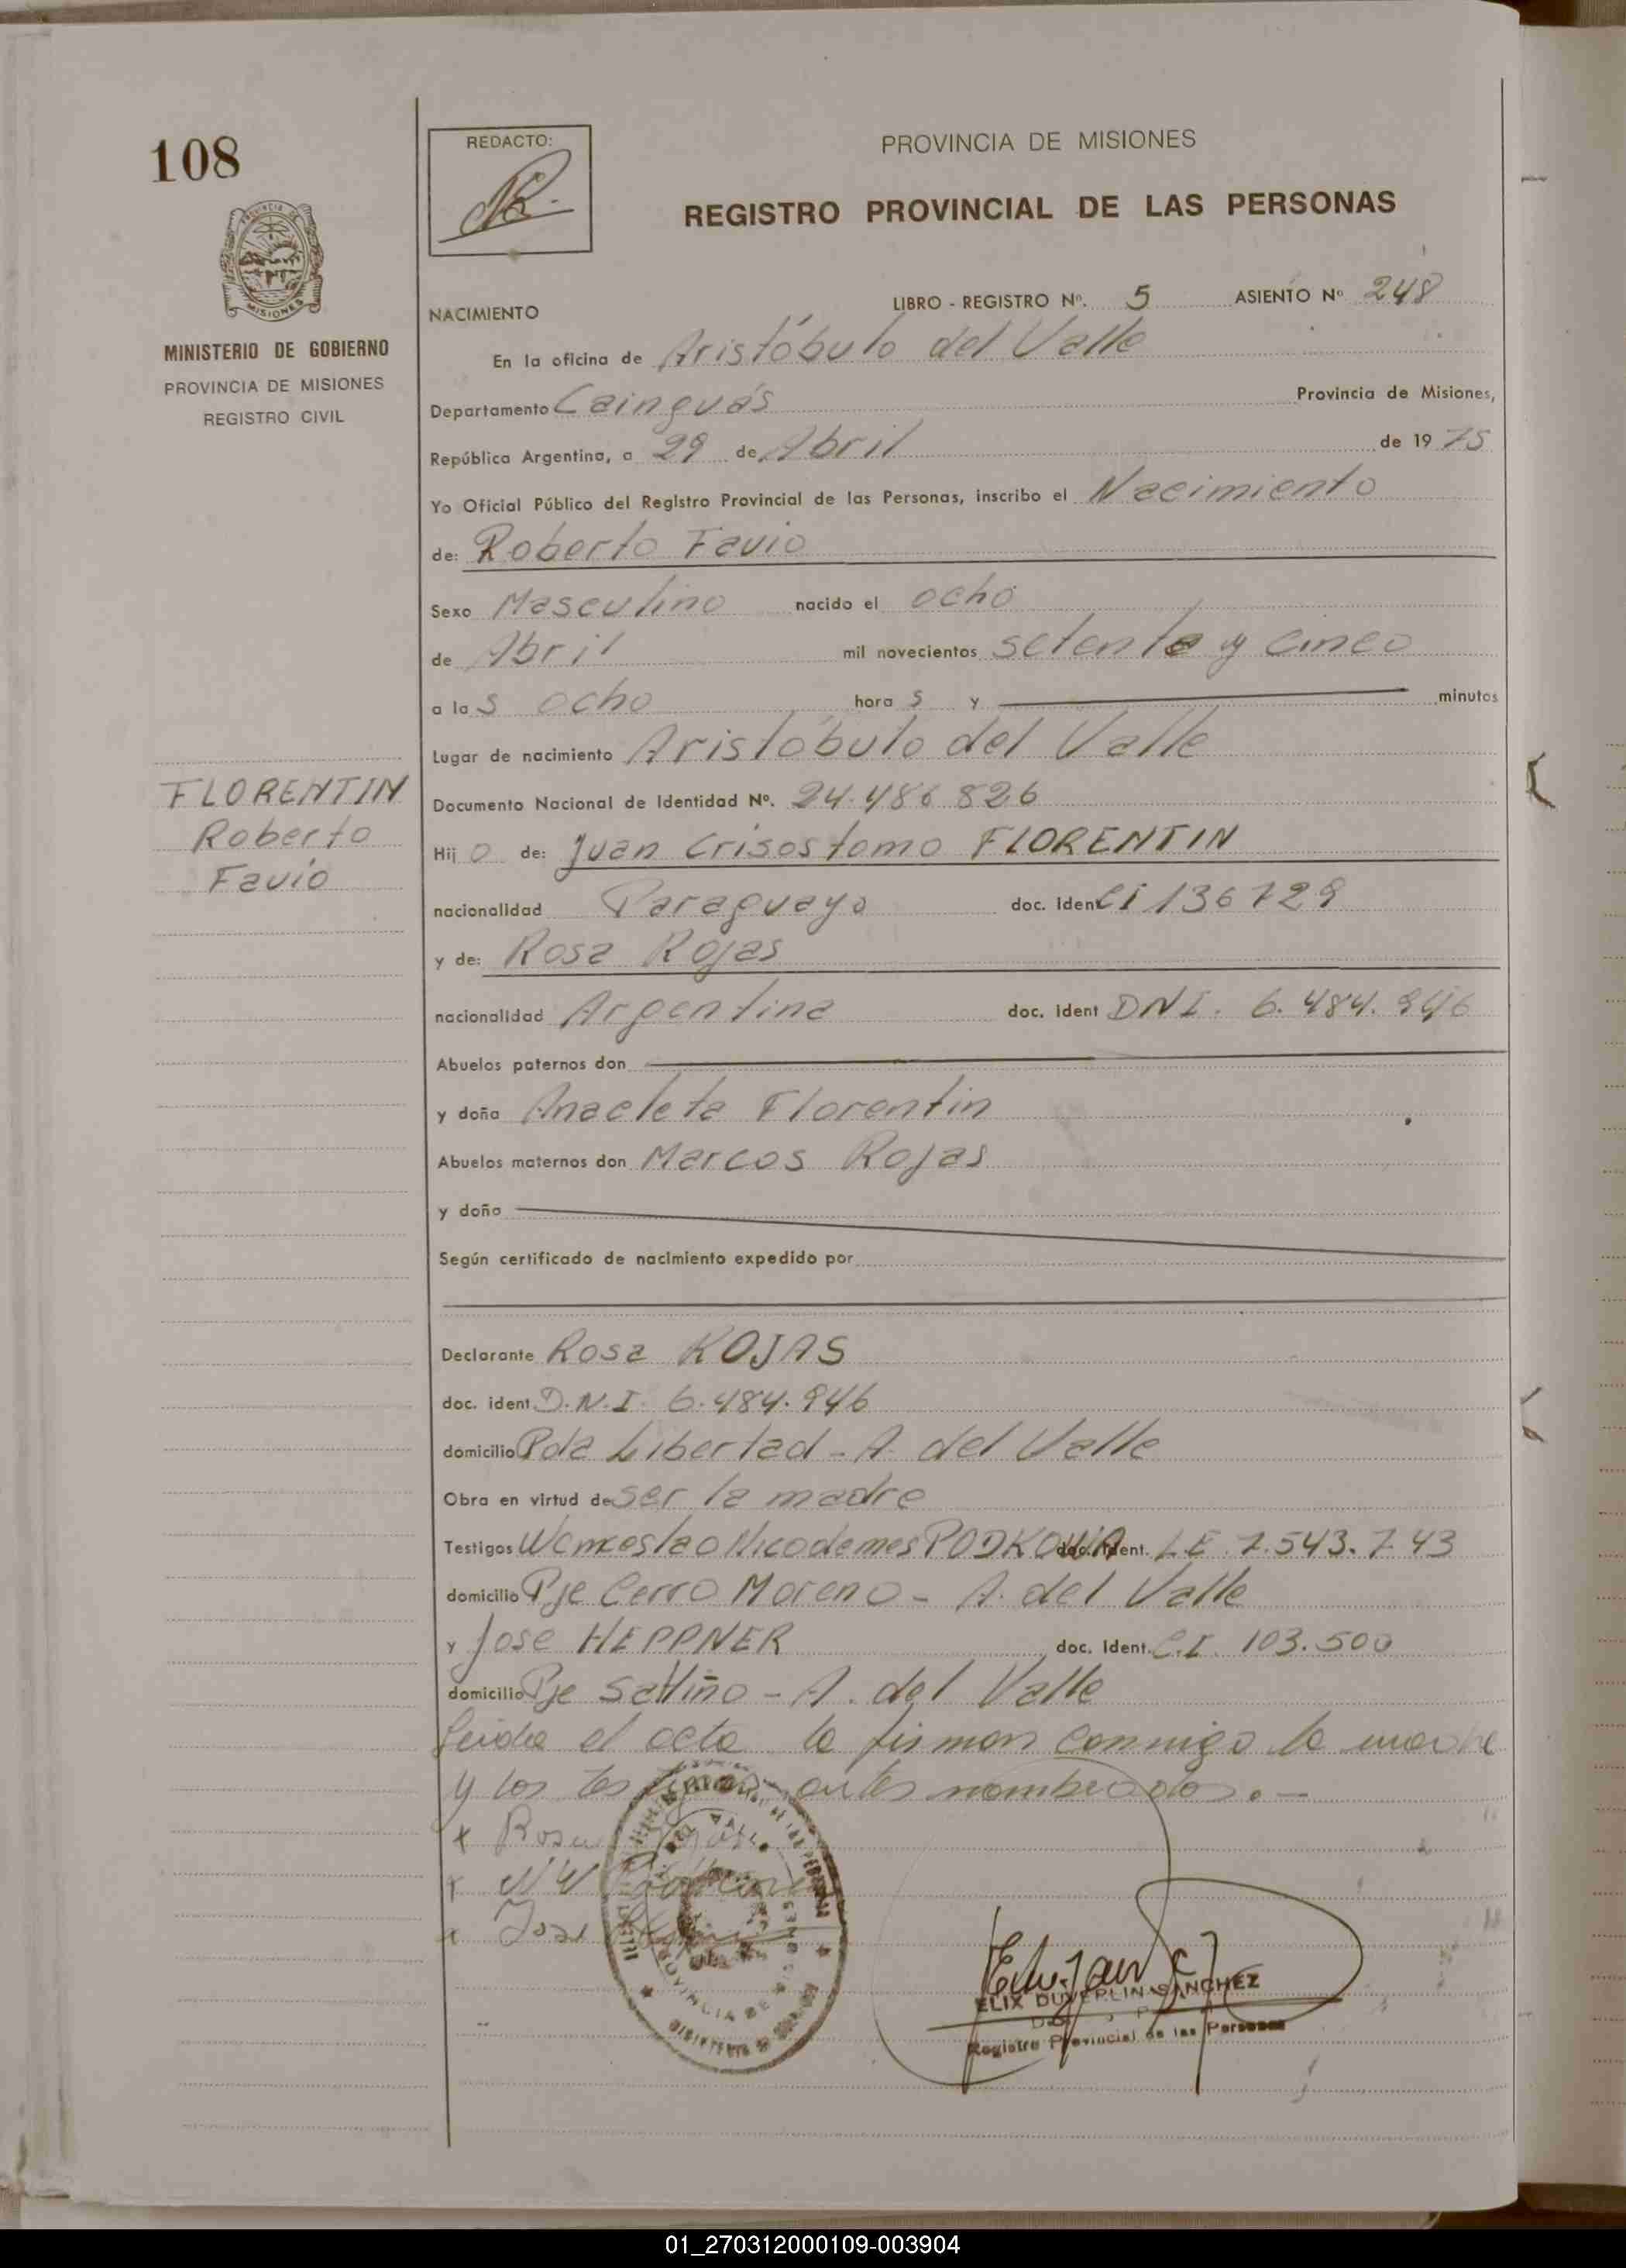 108
REDACTO:
PROVINCIA DE MISIONES
REGISTRO PROVINCIAL DE LAS PERSONAS
MISIONES
MINISTERIO DE GOBIERNO
PROVINCIA DE MISIONES
REGISTRO CIVIL
NACIMIENTO LIBRO - REGISTRO Nº. 5 ASIENTO Nº 248
En la oficina de Aristóbulo del Valle
Departamento Cainguás Provincia de Misiones,
República Argentina, a 29 de Abril de 1975
Yo Oficial Público del Registro Provincial de las Personas, inscribo el Nacimiento
de: Roberto Favio
Sexo Masculino nacido el ocho
de Abril mil novecientos setenta y cinco
a las ocho horas y minutos
Lugar de nacimiento Aristóbulo del Valle
FLORENTIN
Roberto
Favio
Documento Nacional de Identidad Nº. 24.486.826
Hijo de: Juan Crisostomo FLORENTIN
nacionalidad Paraguaya doc. Ident Ci 136729
y de: Rosa Rojas
nacionalidad Argentina doc. ident DNI. 6.484.946
Abuelos paternos don
y doña Anacleta Florentin
Abuelos maternos don Marcos Rojas
y doña
Según certificado de nacimiento expedido por
Declarante Rosa ROJAS
doc. ident D.N.I. 6.484.946
domicilio Pda Libertad - A. del Valle
Obra en virtud de ser la madre
Testigos Wenceslao Nicodemes PODKOWA doc. Ident. L.E. 7.543.743
domicilio Pje Cerro Moreno - A. del Valle
y Jose HEPPNER doc. Ident. C.I. 103.500
domicilio Pje Saltiño - A. del Valle
Leida el acta la firman conmigo la madre
y los testigos antes nombrados.-
x Rosa Rojas
x
x Jose
ELIX DUVERLIN SANCHEZ
Registro Provincial de las Personas
01_270312000109-003904